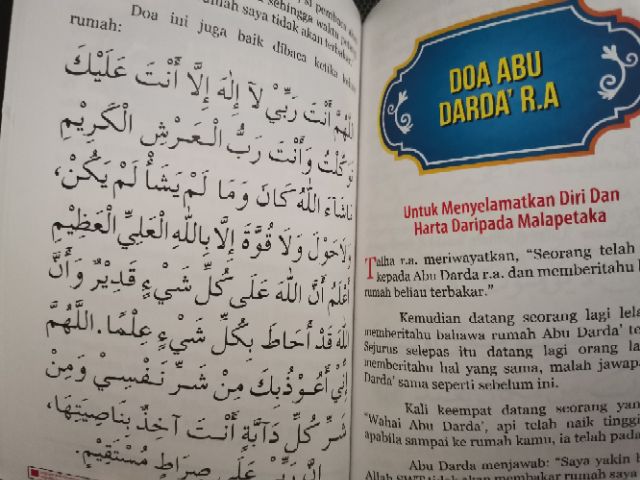 si pembaca
sehingga waktu petang
rumah saya tidak akan terbakar.
Doa ini juga baik dibaca ketika
rumah:
اَللّٰهُمَّ أَنْتَ رَبِّيْ لَآ إِلٰهَ إِلَّا أَنْتَ عَلَيْكَ
تَوَكَّلْتُ وَأَنْتَ رَبُّ الْعَرْشِ الْكَرِيْمِ
مَاشَاءَ اللّٰهُ كَانَ وَمَا لَمْ يَشَأْ لَمْ يَكُنْ،
وَلَاحَوْلَ وَلَا قُوَّةَ إِلَّا بِاللّٰهِ الْعَلِيِّ الْعَظِيْمِ
أَعْلَمُ أَنَّ اللّٰهَ عَلَى كُلِّ شَيْءٍ قَدِيْرٌ وَأَنَّ
اللّٰهَ قَدْ أَحَاطَ بِكُلِّ شَيْءٍ عِلْمًا. اَللّٰهُمَّ
إِنِّي أَعُوْذُبِكَ مِنْ شَرِّ نَفْسِيْ وَمِنْ
شَرِّ كُلِّ دَآبَّةٍ أَنْتَ آخِذٌ بِنَاصِيَتِهَا،
إِنَّ رَبِّيْ عَلَى صِرَاطٍ مُسْتَقِيْمٍ.
DOA ABU
DARDA' R.A
Untuk Menyelamatkan Diri Dan
Harta Daripada Malapetaka
Talha r.a. meriwayatkan, “Seorang telah
kepada Abu Darda r.a. dan memberitahu
rumah beliau terbakar.”
Kemudian datang seorang lagi
memberitahu bahawa rumah Abu Darda'
Sejurus selepas itu datang lagi orang
memberitahu hal yang sama, malah
Darda' sama seperti sebelum ini.
Kali keempat datang seorang
“Wahai Abu Darda', api telah naik
apabila sampai ke rumah kamu, ia telah
Abu Darda menjawab: “Saya yakin
Allah SWT tidak akan membakar rumah saya